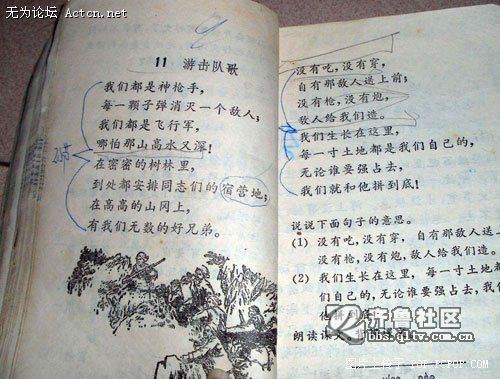 无为论坛
Actcn.net
11 游击队歌
我们都是神枪手，
每一颗子弹消灭一个敌人；
我们都是飞行军，
哪怕那山高水又深！
在密密的树林里，
到处都安排同志们的宿营地；
在高高的山冈上，
有我们无数的好兄弟。
没有吃，没有穿，
自有那敌人送上前；
没有枪，没有炮，
敌人给我们造。
我们生长在这里，
每一寸土地都是我们自己的，
无论谁要强占去，
我们就和他拼到底！
说说下面句子的意思。
(1) 没有吃，没有穿，自有那敌人
没有枪，没有炮，敌人给我们造。
(2) 我们生长在这里，每一寸土地
们自己的，无论谁要强占去，
他拼到
朗读课文
齐鲁社区
bbs.qltv.cn
图片上传于